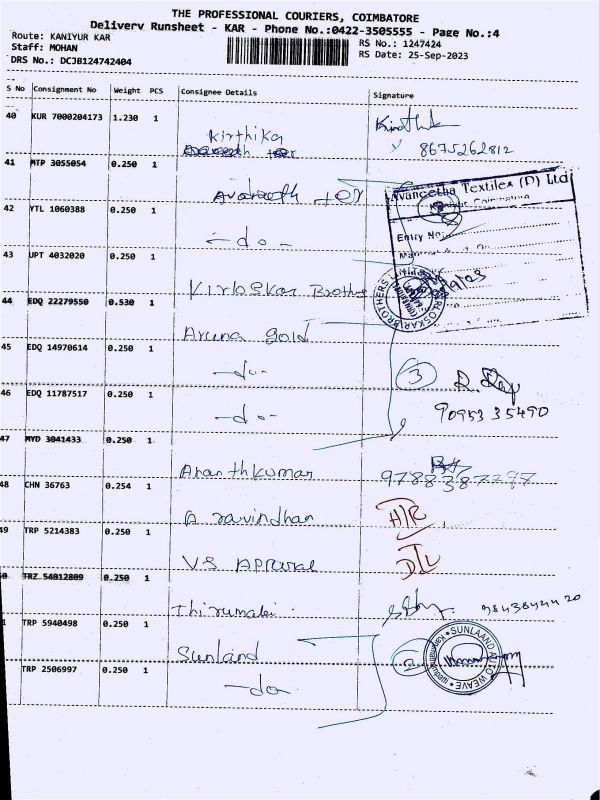 THE PROFESSIONAL COURIERS, COIMBATORE
Delivery Runsheet - KAR - Phone No.:0422-3505555 - Page No.:4
Route: KANIYUR KAR
RS No.: 1247424
Staff: MOHAN
RS Date: 25-Sep-2023
DRS No.: DCJB124742404
S No Consignment No Weight PCS Consignee Details Signature
40 KUR 7000204173 1.230 1
Kirthika
8675262812
41 MTP 3055054 0.250 1
Avaneetha Textiles (P) Ltd
42 YTL 1060388 0.250 1
-do-
Entry No:
43 UPT 4032020 0.250 1
Kirloskar Brothers
KIRLOSKAR BROTHERS
44 EDQ 22279550 0.530 1
Aruna gold
45 EDQ 14970614 1
0.250
-do-
3
46 EDQ 11787517 0.250 1
-do-
9095335490
47 MYD 3041433 0.250 1
Ananthkumar
48 CHN 36763 0.254 1
A ravindhan
49 TRP 5214383 0.250 1
VS Apparal
D/L
0 TRZ 54012809 0.250 1
Thirumalai
1 TRP 5940498 0.250 1
Sunland
SUNLAAND AUTO WEAVE
TRP 2506997 0.250 1
-do-